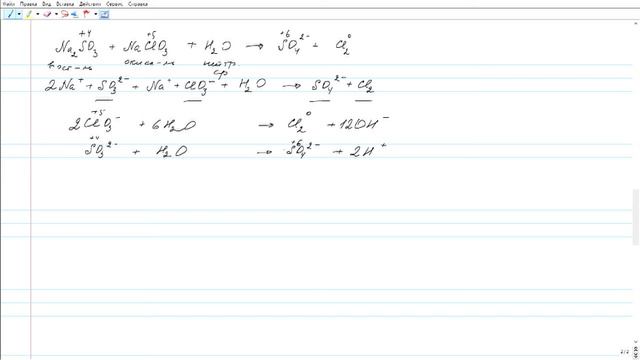 Файл Правка Вид Вставка Действия Сервис Справка
+4 +5 +6 0
Na₂SO₃ + NaClO₃ + H₂O → SO₄²⁻ + Cl₂
восст-ль окисл-ль нейтр.
ср
2Na⁺ + SO₃²⁻ + Na⁺ + ClO₃⁻ + H₂O → SO₄²⁻ + Cl₂
+5 0
2ClO₃⁻ + 6H₂O → Cl₂ + 12OH⁻
+4 +6
SO₃²⁻ + H₂O → SO₄²⁻ + 2H⁺
2/2